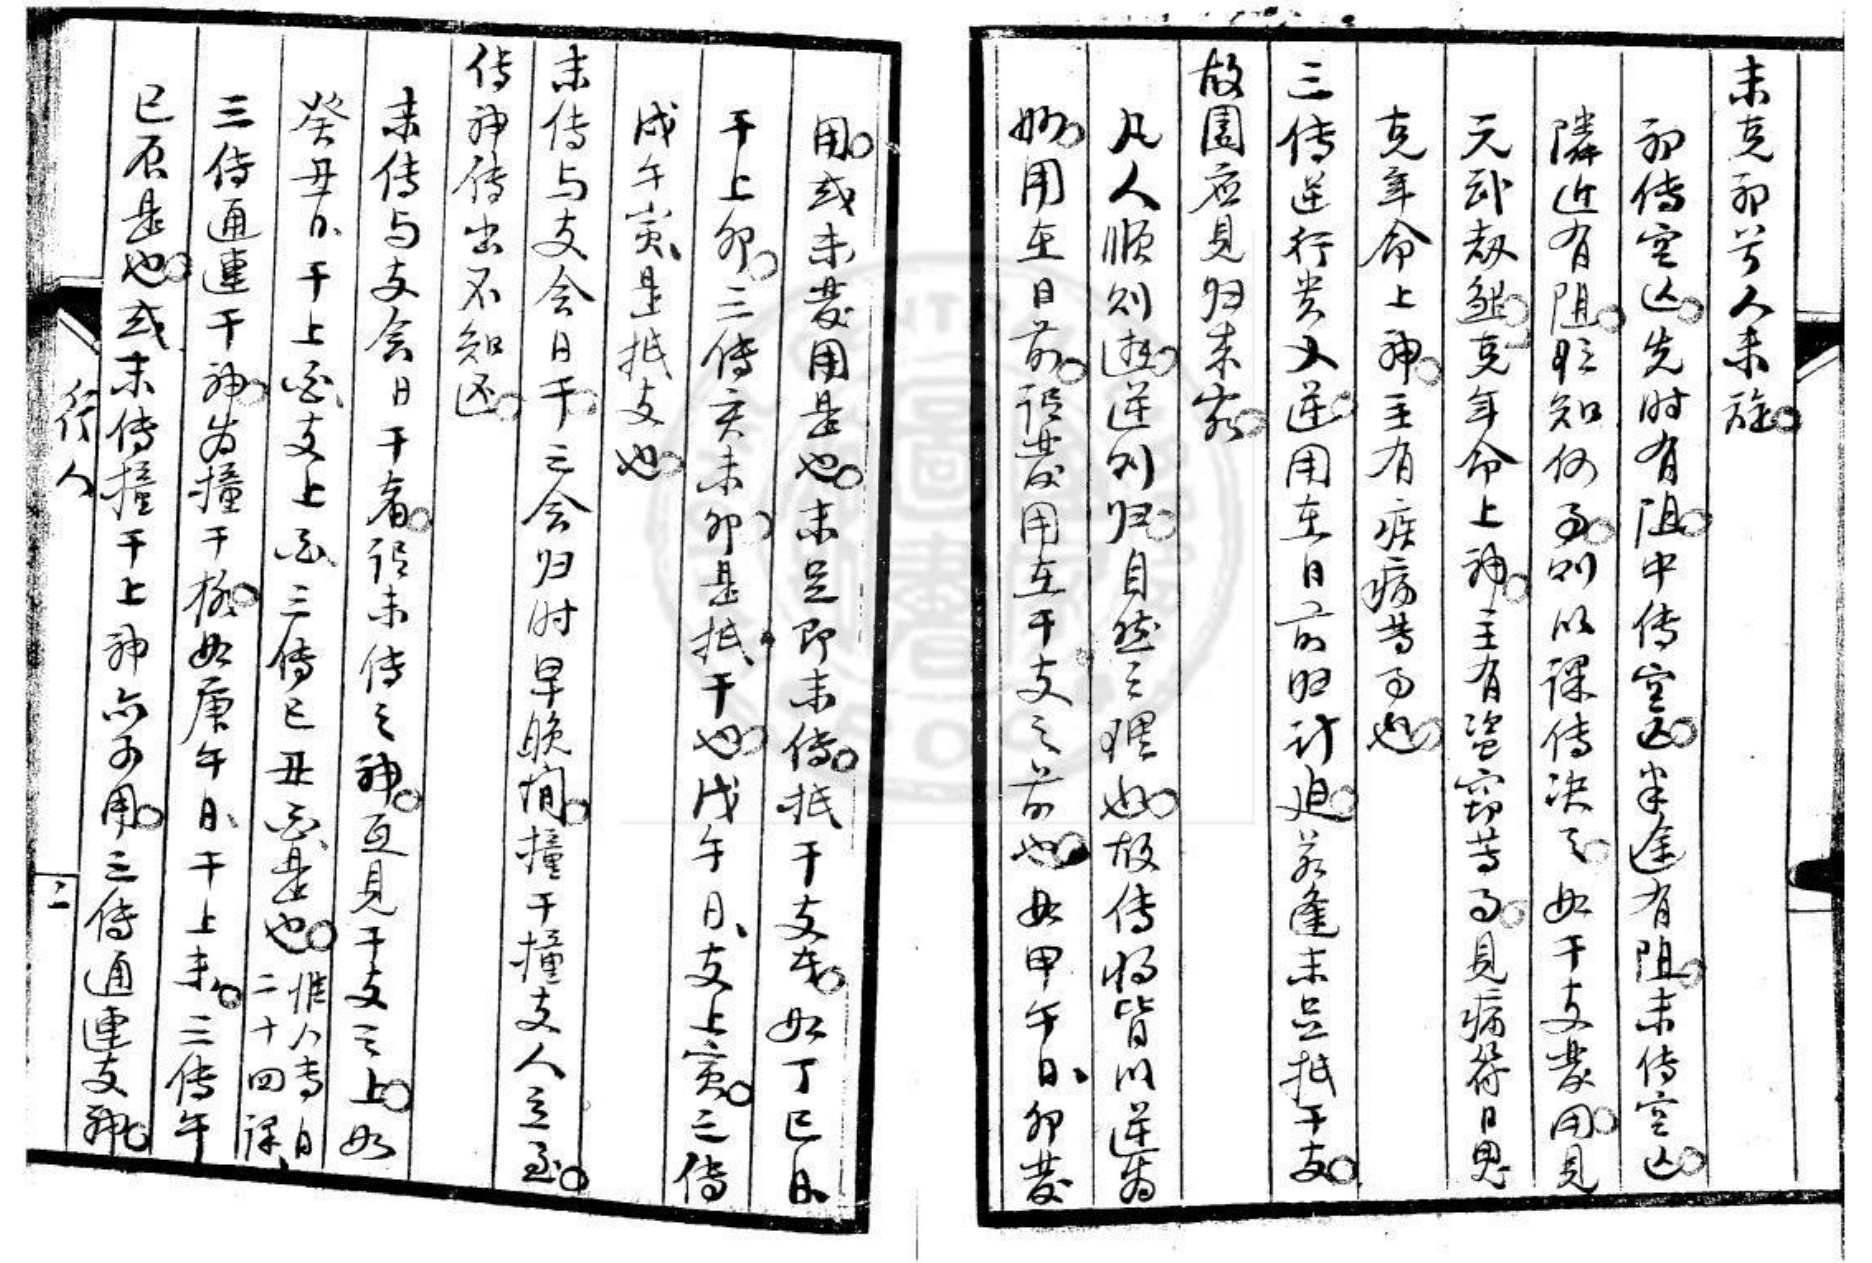 末克初兮人未旋
初传空亡先时有阻中传空亡半途有阻末传空亡
隣近有阻欲知何事则以课传决之如干支发用见
元武劫煞克年命上神主有盗窃等事见病符日鬼
克年命上神主有疾病等事也
三传逆行贵又逆用在日前归计迫若逢末足抵干支
故园应见归来客
凡人顺则逝逆则归自然之理也故传将皆以逆为
妙用在日前谓发用在干支之前也如甲午日卯发
用或未发用是也末足即末传抵干支者如丁巳日
干上卯三传亥未卯是抵干也戊午日支上寅三传
戌午寅是抵支也
末传与支会日干三会归时早晚间撞干撞支人立至
传神传出不知还
末传与支会日干者谓末传之神互见干支之上如
癸丑日干上酉支上酉三传巳丑酉是也 惟人专日二十四课
三传通连干神为撞干极如庚午日干上未三传午
巳辰是也或末传撞干上神亦可用三传通连支神
行人
二